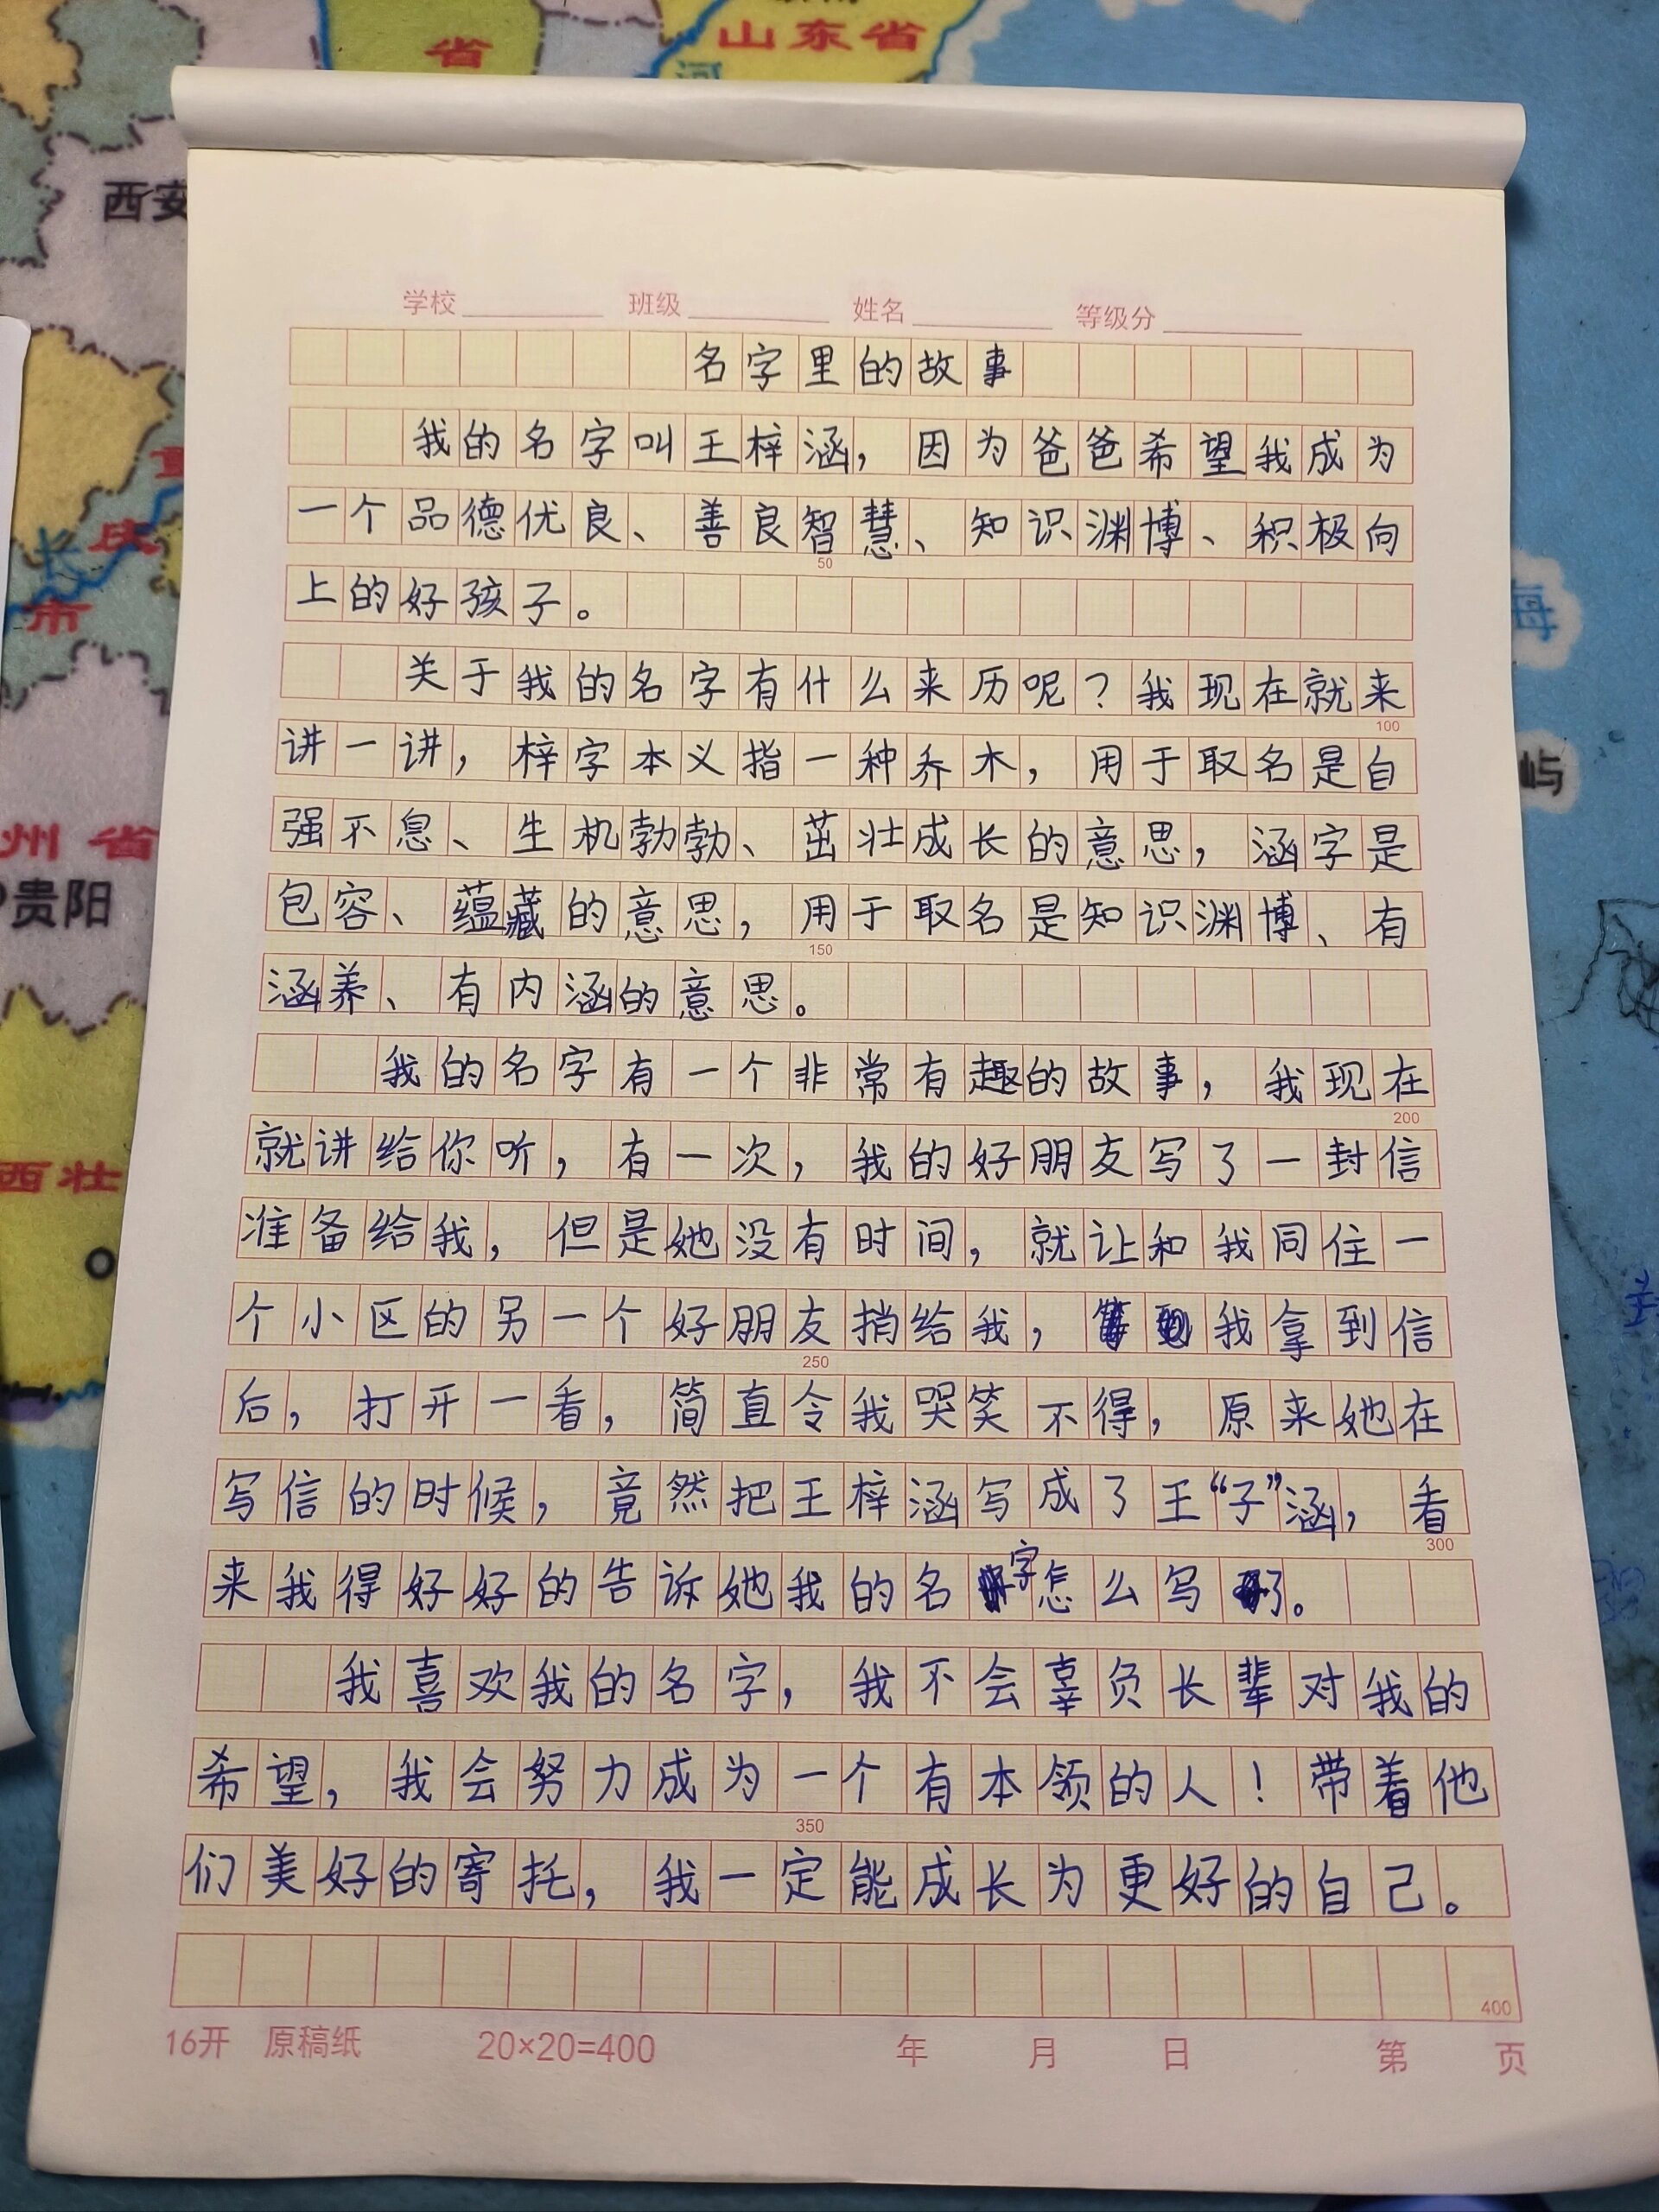 省
山东省
河
西安
长
庆
市
海
屿
州省
贵阳
西壮
学校 班级 姓名 等级分
名字里的故事
我的名字叫王梓涵，因为爸爸希望我成为
一个品德优良、善良智慧、知识渊博、积极向
50
上的好孩子。
关于我的名字有什么来历呢？我现在就来
100
讲一讲，梓字本义指一种乔木，用于取名是自
强不息、生机勃勃、茁壮成长的意思，涵字是
包容、蕴藏的意思，用于取名是知识渊博、有
150
涵养、有内涵的意思。
我的名字有一个非常有趣的故事，我现在
200
就讲给你听，有一次，我的好朋友写了一封信
准备给我，但是她没有时间，就让和我同住一
个小区的另一个好朋友捎给我，我拿到信
250
后，打开一看，简直令我哭笑不得，原来她在
写信的时候，竟然把王梓涵写成了王“子”涵，看
300
来我得好好的告诉她我的名字怎么写了。
我喜欢我的名字，我不会辜负长辈对我的
希望，我会努力成为一个有本领的人！带着他
350
们美好的寄托，我一定能成长为更好的自己。
400
16开 原稿纸 20×20=400 年 月 日 第 页